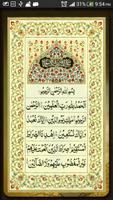 9:54 PM
بِسْمِ اللَّهِ الرَّحْمَٰنِ الرَّحِيمِ
الْحَمْدُ لِلَّهِ رَبِّ الْعَٰلَمِينَ الرَّحْمَٰنِ
الرَّحِيمِ مَٰلِكِ يَوْمِ الدِّينِ إِيَّاكَ نَعْبُدُ
وَإِيَّاكَ نَسْتَعِينُ اهْدِنَا الصِّرَاطَ
الْمُسْتَقِيمَ صِرَاطَ الَّذِينَ أَنْعَمْتَ عَلَيْهِمْ
غَيْرِ الْمَغْضُوبِ عَلَيْهِمْ وَلَا الضَّالِّينَ